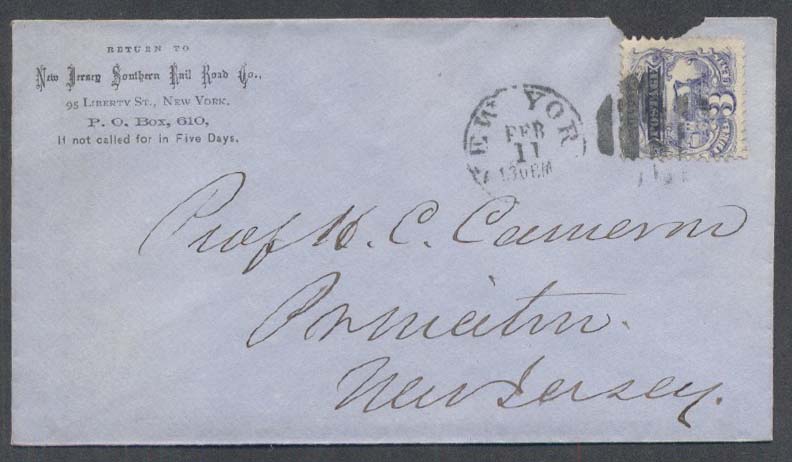 RETURN TO
New Jersey Southern Rail Road Co.,
95 LIBERTY ST., NEW YORK.
P. O. Box, 610,
If not called for in Five Days.
NEW YOR
FEB
11
130PM
POSTAGE
3
Prof H. C. Cameron
Princeton.
New Jersey.